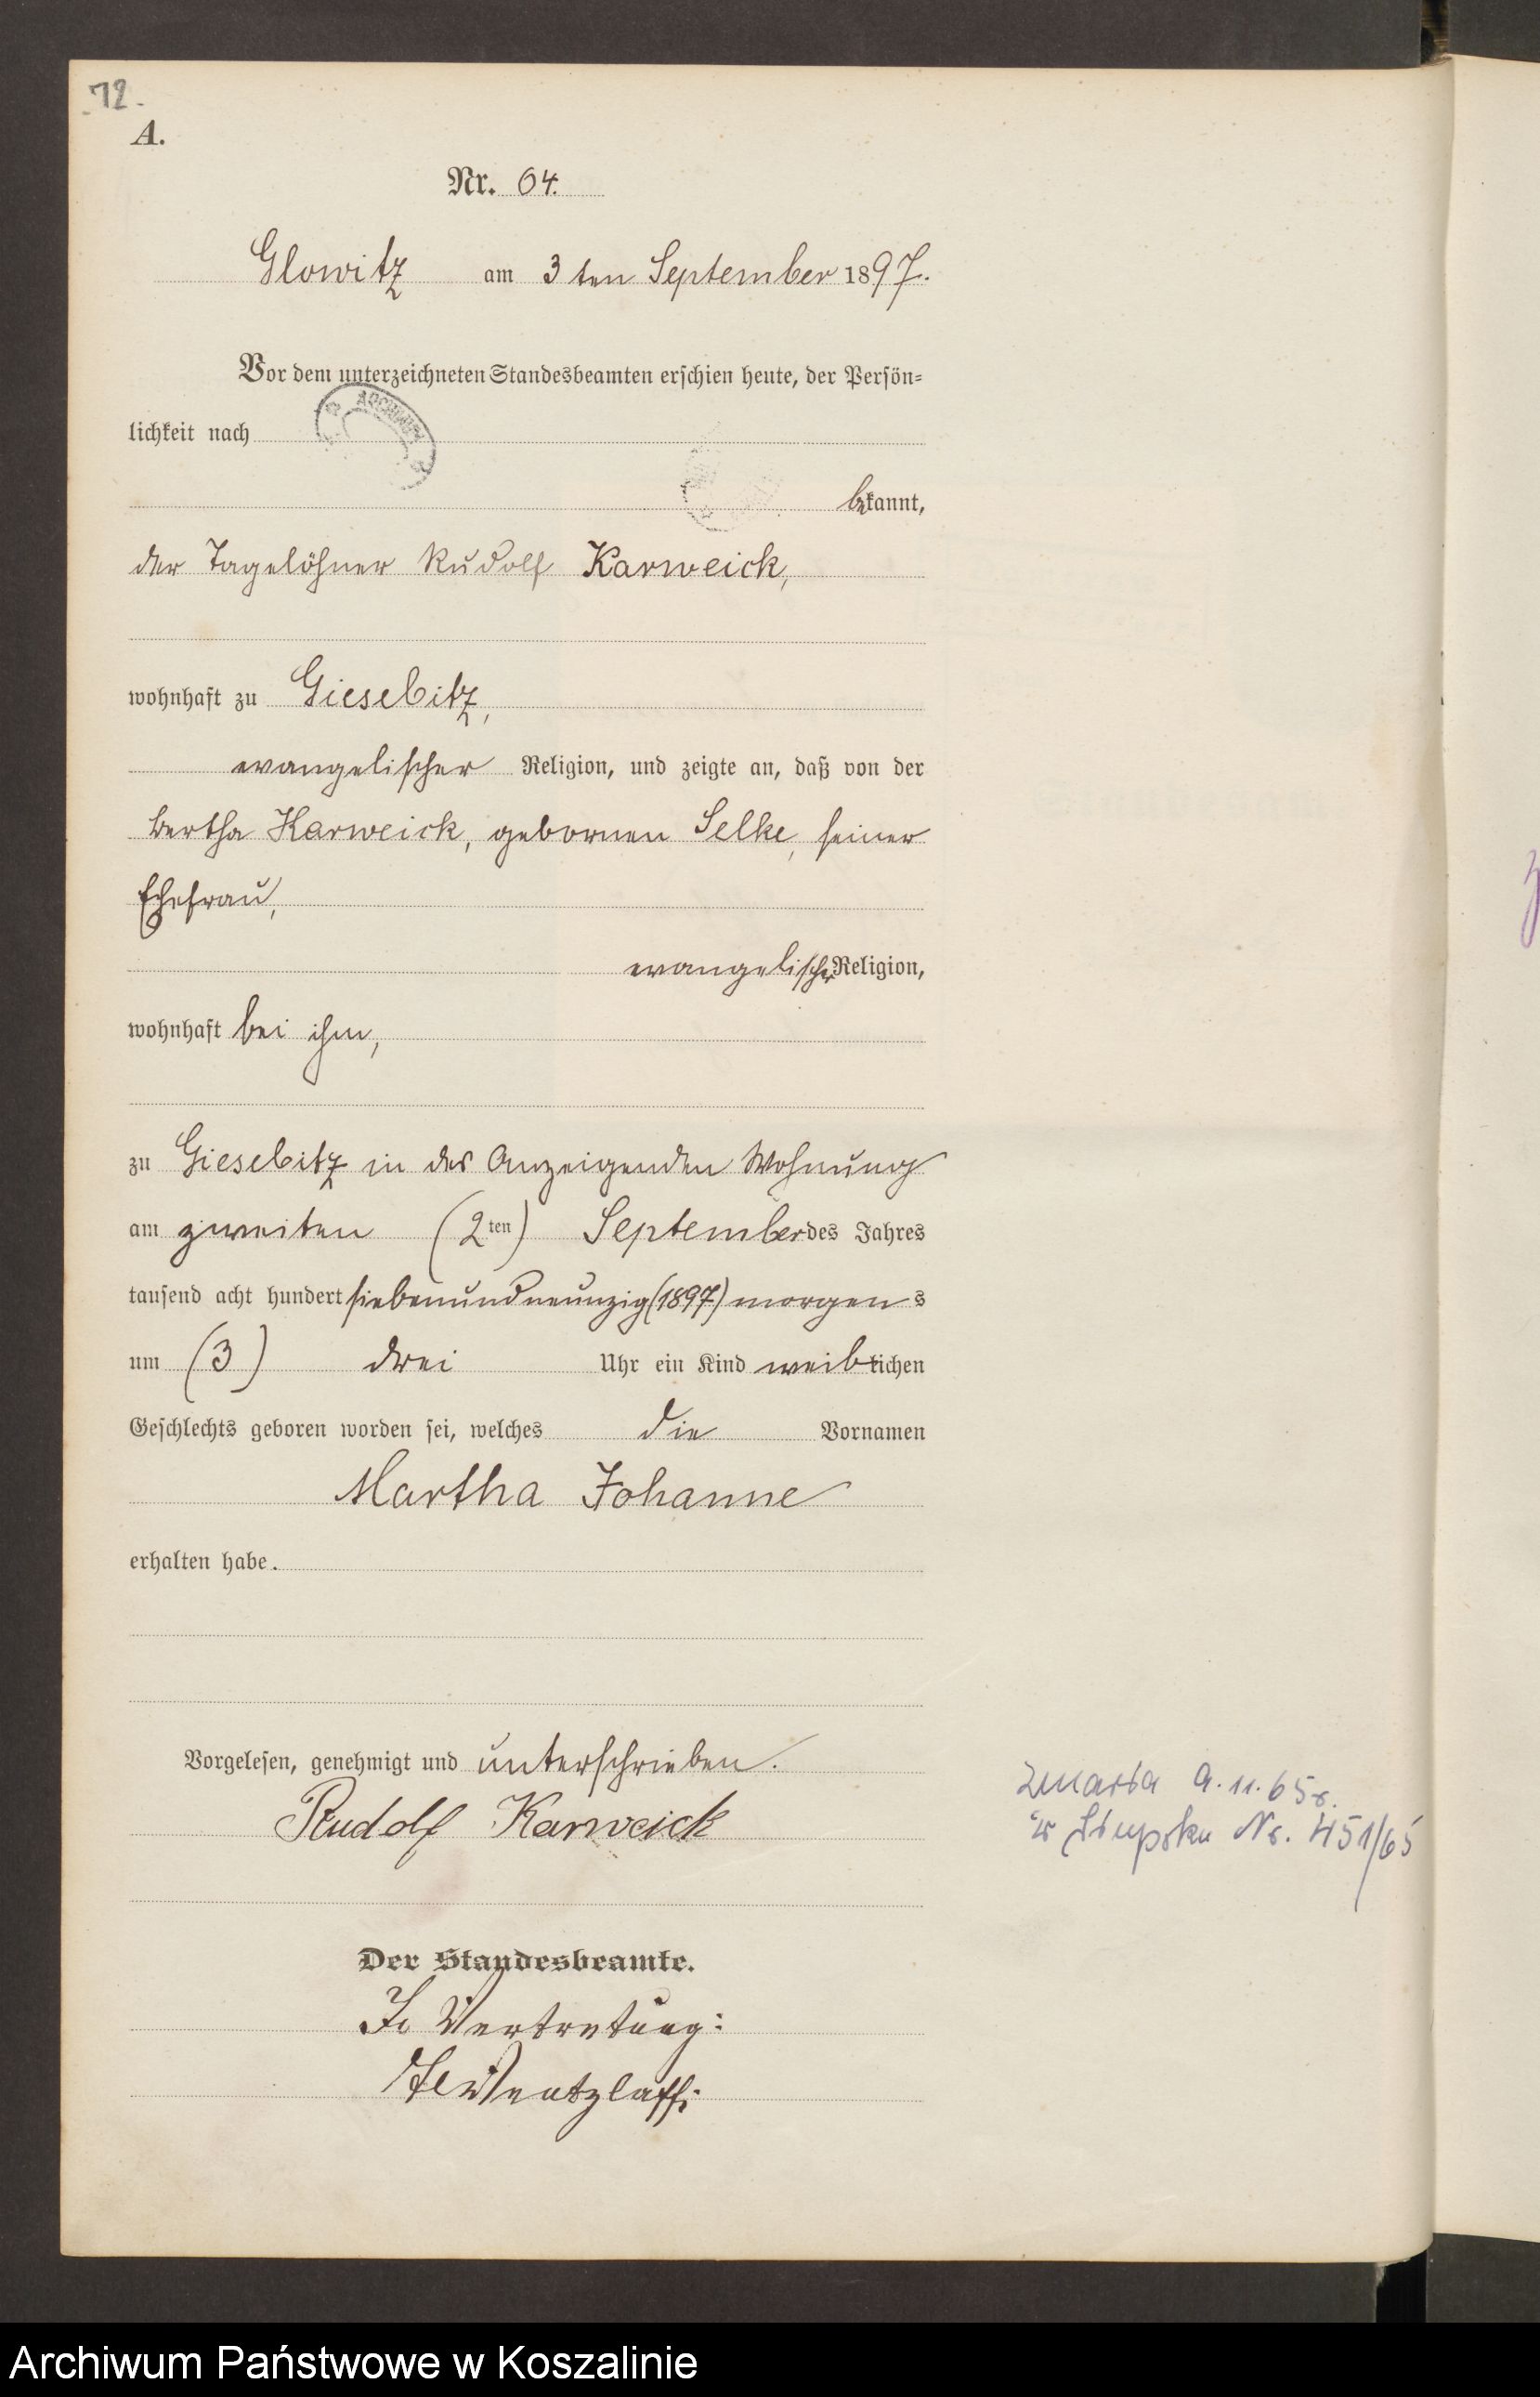 72.
A.
Nr. 64.
Glowitz am 3ten September 1897.
Vor dem unterzeichneten Standesbeamten erschien heute, der Persön-
lichkeit nach
bekannt,
der Tagelöhner Rudolf Karweick,
wohnhaft zu Giesebitz,
evangelischer Religion, und zeigte an, daß von der
Bertha Karweick, gebornen Selke, seiner
Ehefrau,
evangelischer Religion,
wohnhaft bei ihm,
zu Giesebitz in des Anzeigenden Wohnung
am zweiten (2ten) September des Jahres
tausend acht hundert siebenundneunzig (1897) morgens
um (3) drei Uhr ein Kind weiblichen
Geschlechts geboren worden sei, welches die Vornamen
Martha Johanne
erhalten habe.
Vorgelesen, genehmigt und unterschrieben.
Rudolf Karweick
Zmarła 9.11.65r.
w Słupsku Nr. 451/65
Der Standesbeamte.
In Vertretung:
Wentzlaff.
Archiwum Państwowe w Koszalinie